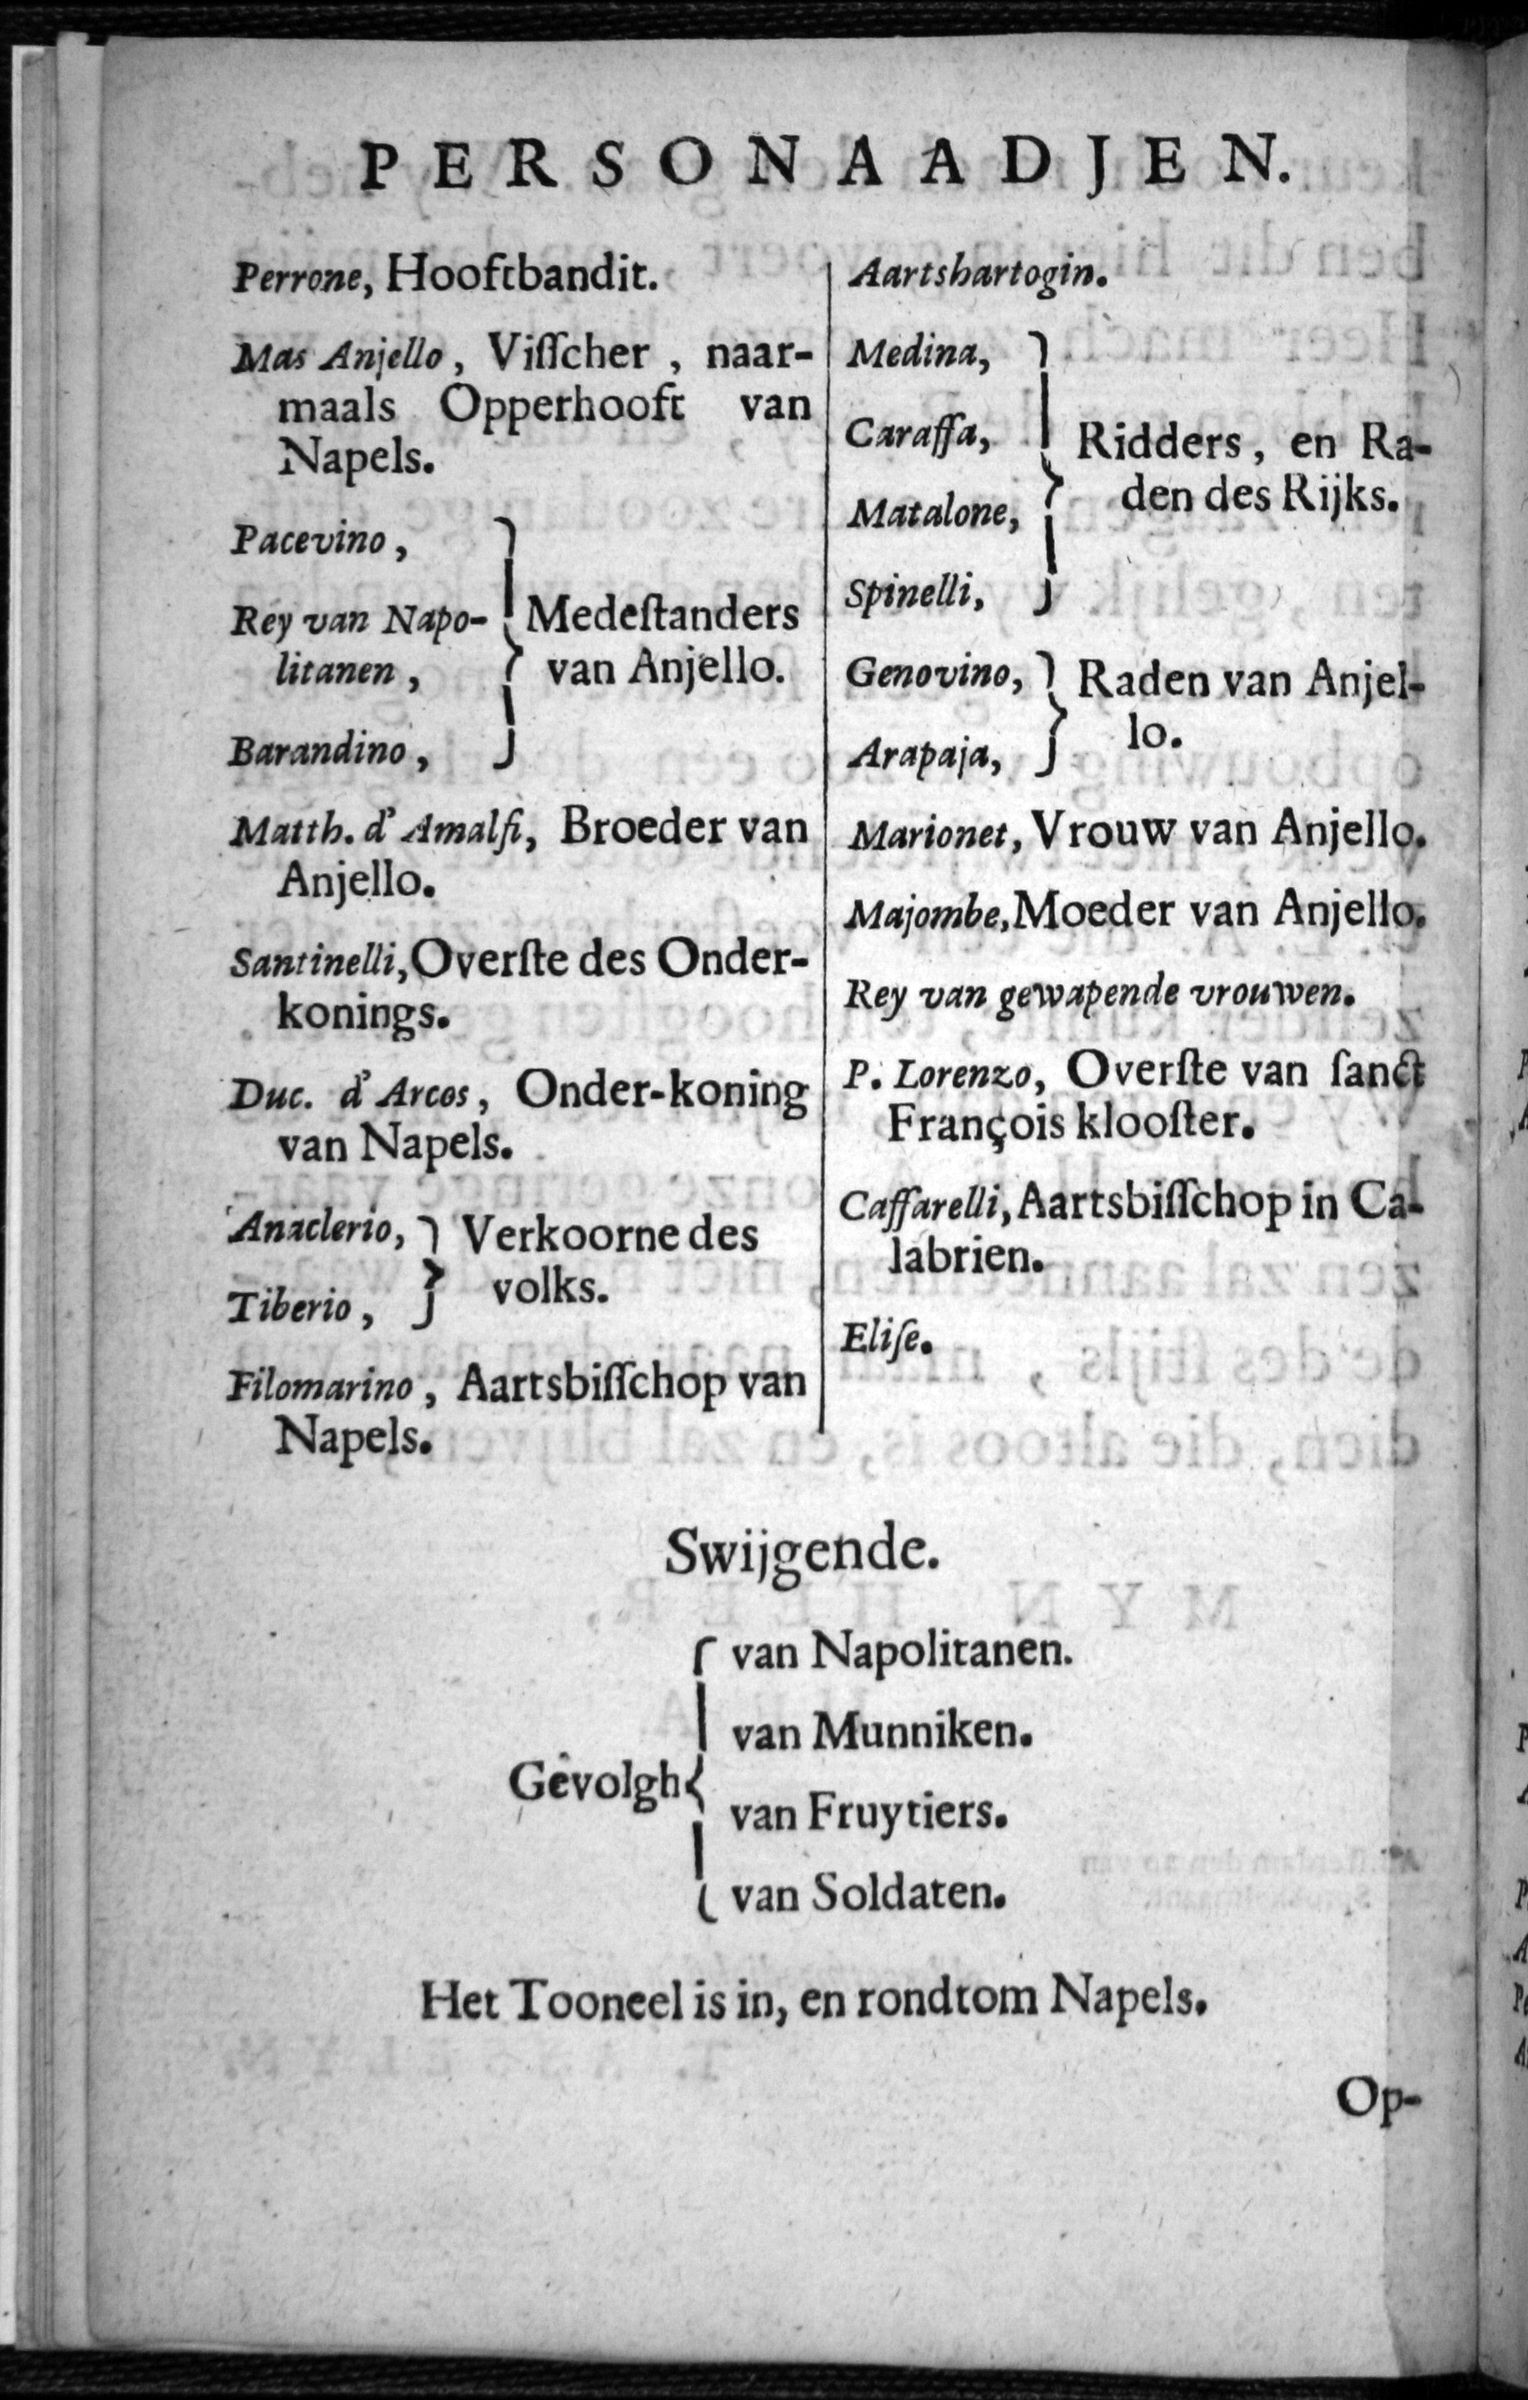 PERSONAADJEN.
Perrone, Hooftbandit.
Mas Anjello, Viſſcher, naar-
maals Opperhooft van
Napels.
Pacevino,
Rey van Napo-
litanen,
Barandino,
Medeſtanders
van Anjello.
Matth. d' Amalfi, Broeder van
Anjello.
Santinelli, Overſte des Onder-
konings.
Duc. d' Arcos, Onder-koning
van Napels.
Anaclerio,
Tiberio,
Verkoorne des
volks.
Filomarino, Aartsbiſſchop van
Napels.
Aartshartogin.
Medina,
Caraffa,
Matalone,
Spinelli,
Ridders, en Ra-
den des Rijks.
Genovino,
Arapaja,
Raden van Anjel-
lo.
Marionet, Vrouw van Anjello.
Majombe, Moeder van Anjello.
Rey van gewapende vrouwen.
P. Lorenzo, Overſte van ſanct
François klooſter.
Caffarelli, Aartsbiſſchop in Ca-
labrien.
Eliſe.
Swijgende.
Gevolgh
van Napolitanen.
van Munniken.
van Fruytiers.
van Soldaten.
Het Tooneel is in, en rondtom Napels.
Op-